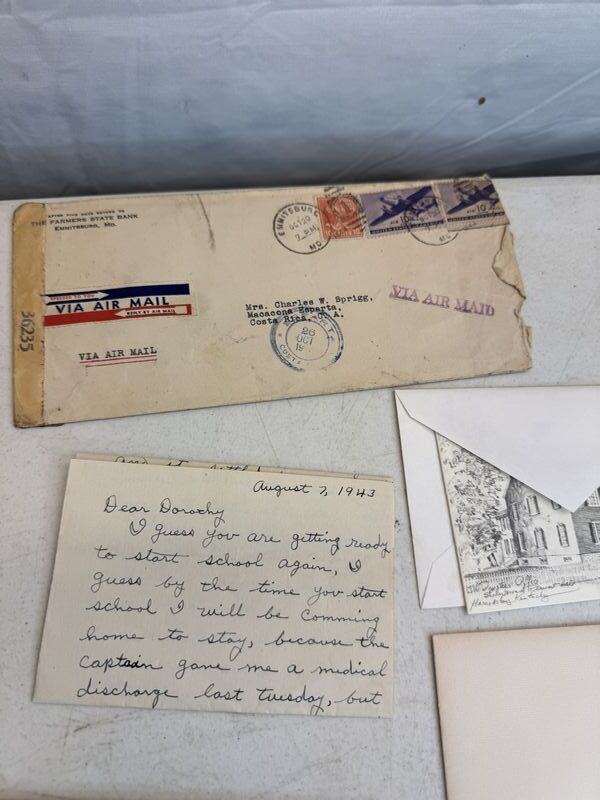 AFTER FIVE DAYS RETURN TO
THE FARMERS STATE BANK
EMMITSBURG, MD.
EMMITSBURG
OCT 20
7 PM
MD.
10
UNITED STATES OF
10
VIA AIR MAIL
REPLY BY AIR MAIL
VIA AIR MAIL
36235
Mrs. Charles W. Sprigg,
Macacona Esparta,
Costa Rica, C. A.
VIA AIR MAIL
26
OCT
19
and it
August 7, 1943
Dear Dorothy
I guess you are getting ready
to start school again, I
guess by the time you start
school I will be comming
home to stay, because the
captain gave me a medical
discharge last tuesday, but
Kentucky